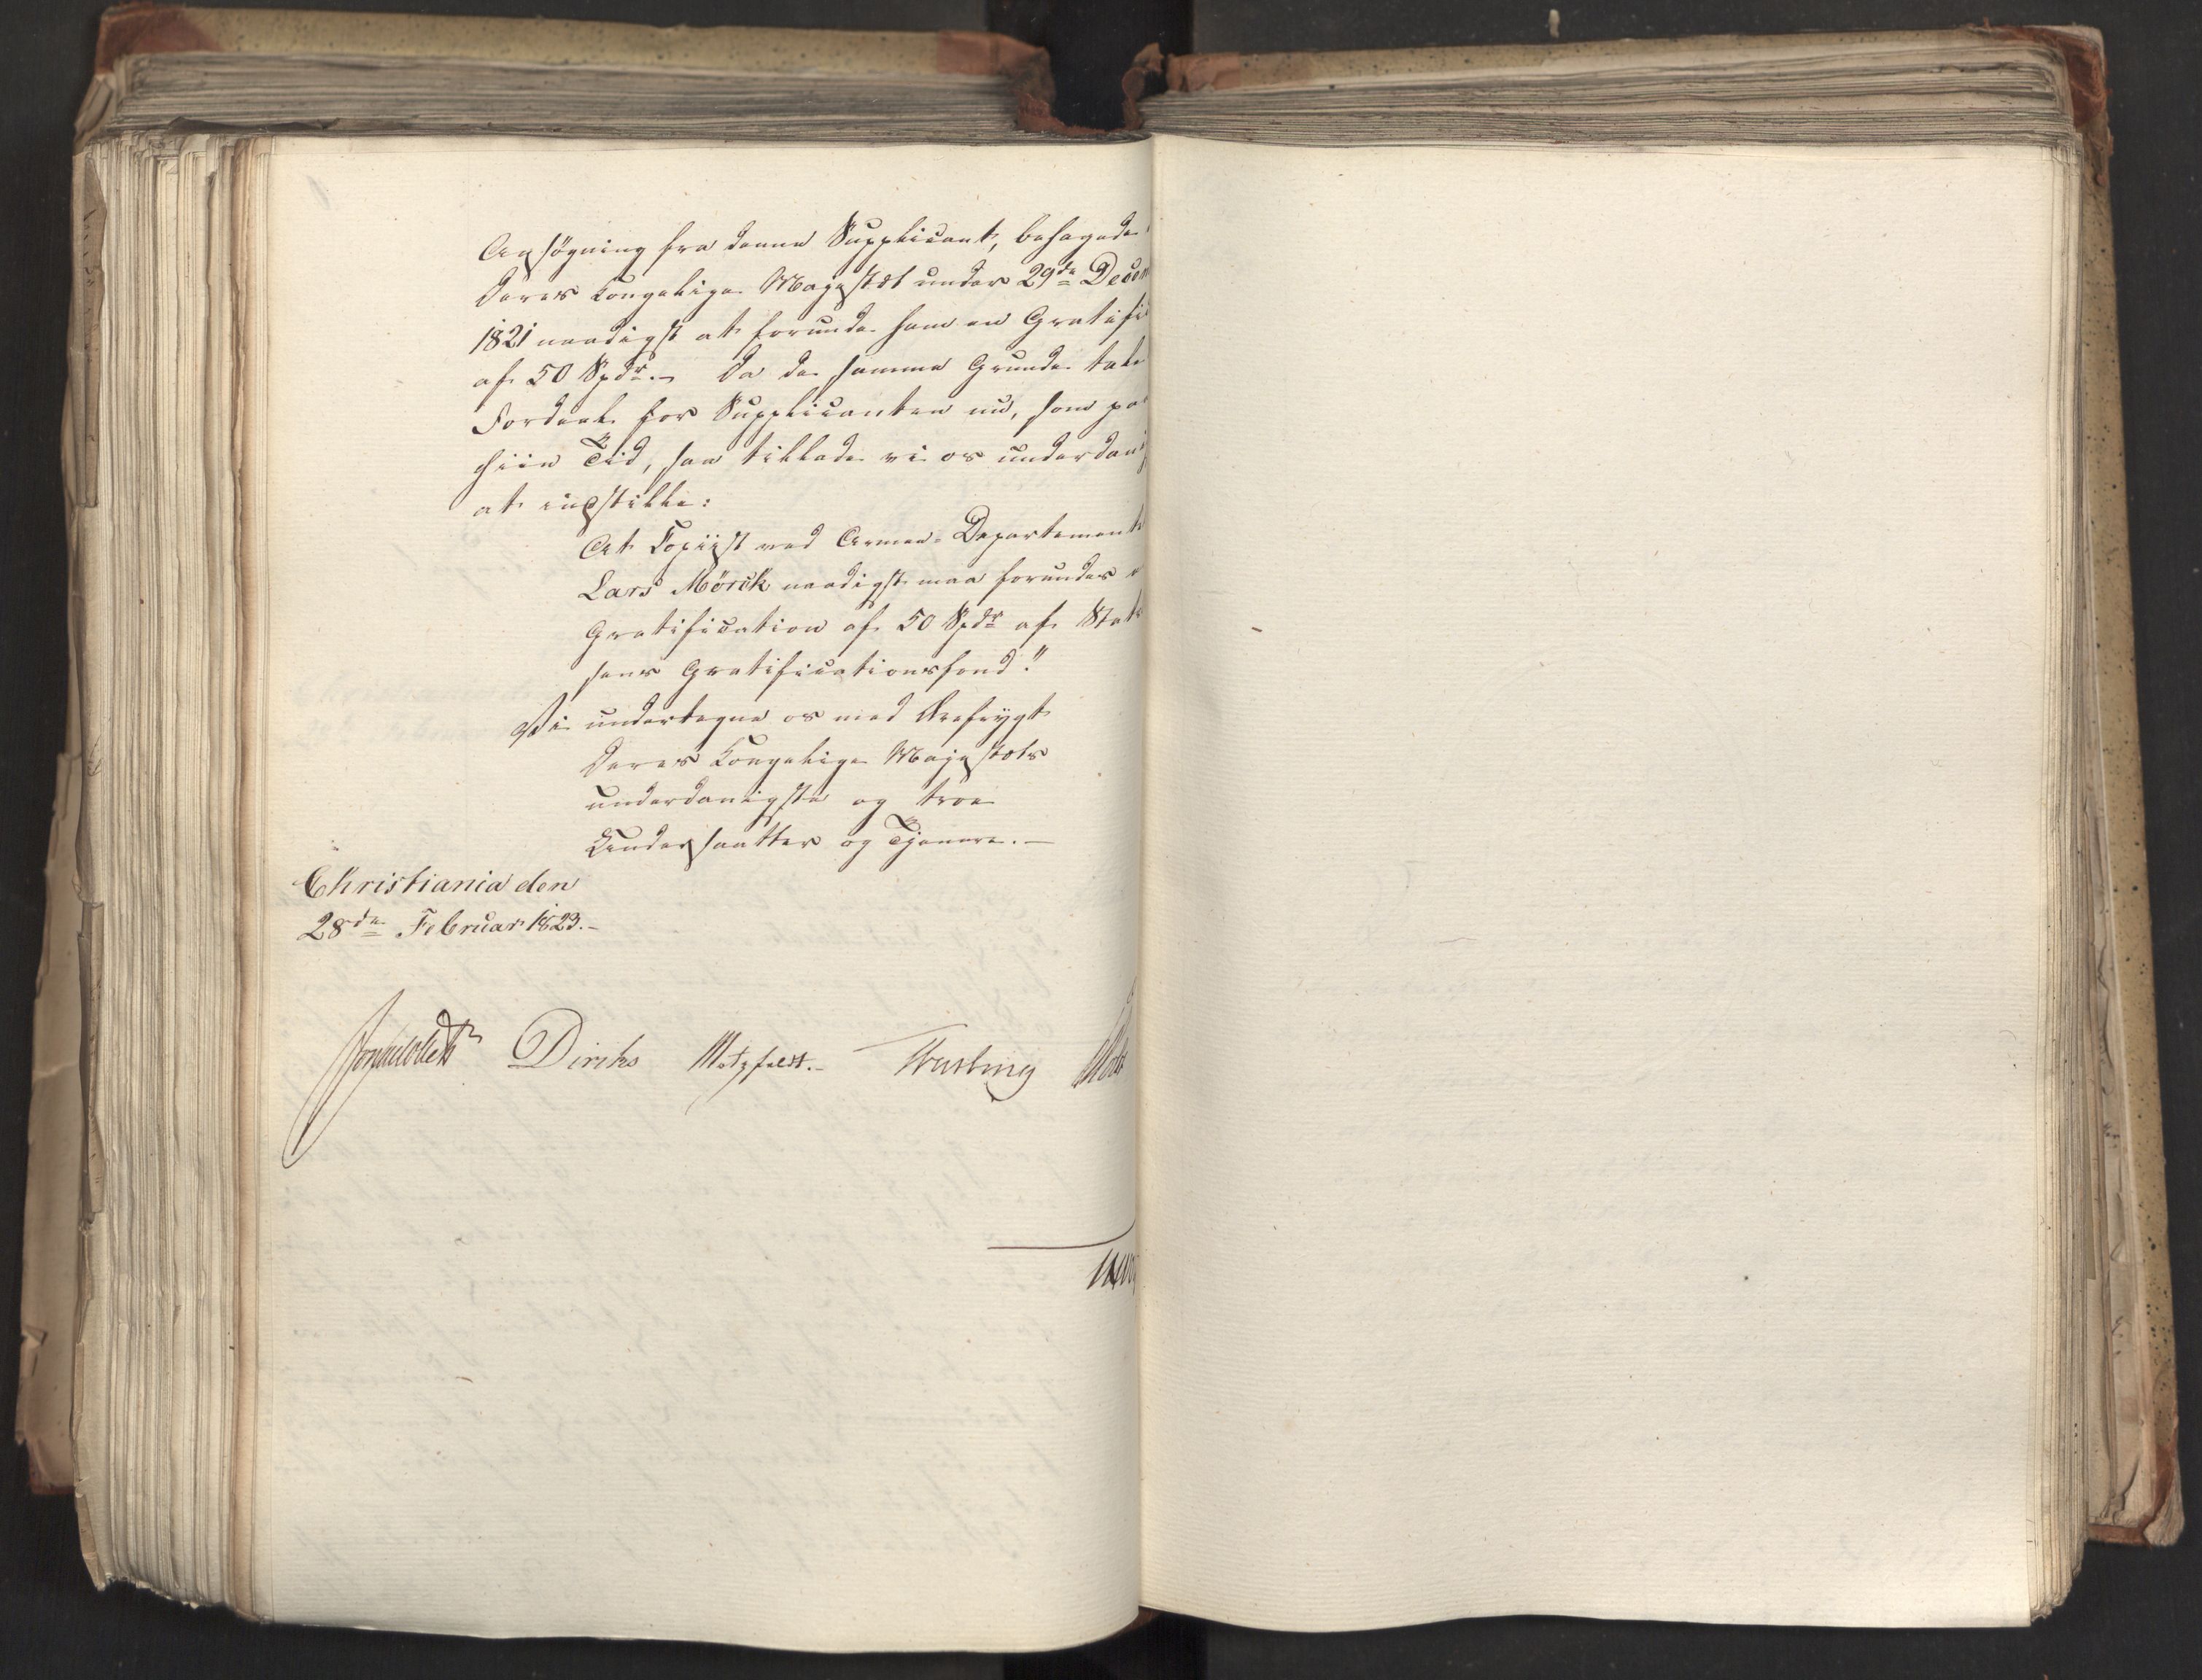 Ansøgning fra denne Supplicant, behagede
Deres Kongelige Majestæt under 29de Decem
1821 naadigst at forunde ham en Gratifi
af 50 Spdr. – Da de samme Grunde tale
Fordeel for Supplicanten nu, som paa
hiin Tid, saa tillade vi os underdani
at indstille:
At Copiist ved Armee-Departement
Lars Mörck naadigst maa forundes
Gratification af 50 Spdr af Stat
sens Gratificationsfond."
Vi undertegne os med Ærefrygt
Deres Kongelige Majestæts
underdanigste og troe
Undersaatter og Tjenere. –
Christiania den
28de Februar 1823. –
Diriks Motzfeldt. –